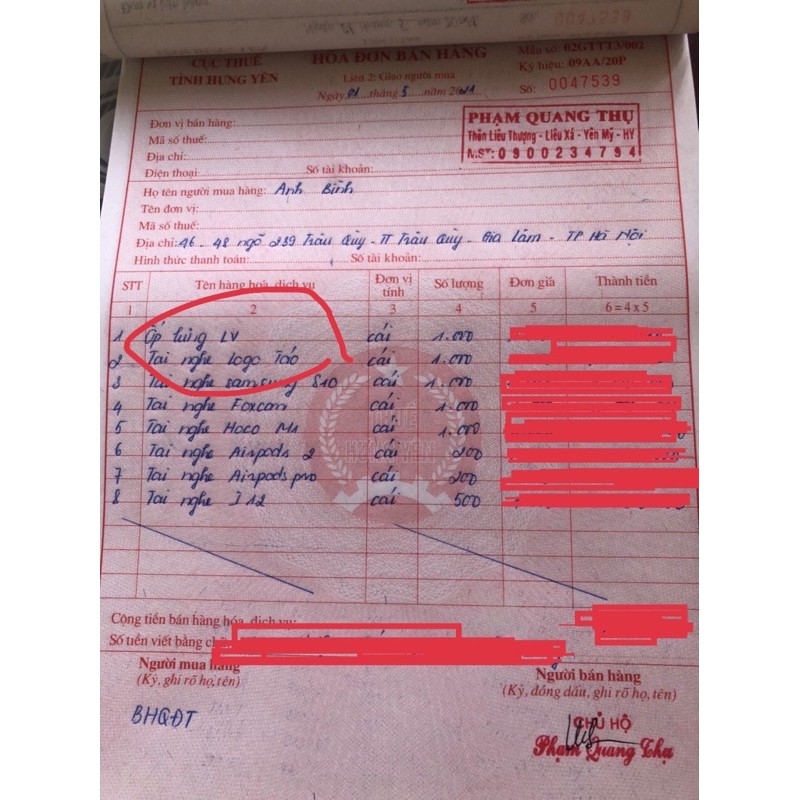 Đơn vị bán hàng
0047539
CỤC THUẾ
TỈNH HƯNG YÊN
HÓA ĐƠN BÁN HÀNG
Liên 2: Giao người mua
Ngày 01 tháng 5 năm 2021
Mẫu số: 02GTTT3/002
Ký hiệu: 09AA/20P
Số: 0047539
Đơn vị bán hàng:
Mã số thuế:
Địa chỉ:
Điện thoại: Số tài khoản:
PHẠM QUANG THỤ
Thôn Liêu Thượng - Liêu Xá - Yên Mỹ - HY
MST: 0900234794
Họ tên người mua hàng: Anh Bình
Tên đơn vị:
Mã số thuế:
Địa chỉ: 46 - 48 ngõ 239 Trâu Quỳ - TT Trâu Quỳ - Gia Lâm - TP Hà Nội
Hình thức thanh toán: Số tài khoản:
STT Tên hàng hoá, dịch vụ Đơn vị tính Số lượng Đơn giá Thành tiền
1 2 3 4 5 6 = 4 x 5
1 Ốp lưng LV cái 1.000
2 Tai nghe logo Táo cái 1.000
3 Tai nghe samsung S10 cái 1.000
4 Tai nghe Foxcon cái 1.000
5 Tai nghe Hoco M1 cái 1.000
6 Tai nghe Airpods 2 cái 200
7 Tai nghe Airpods pro cái 200
8 Tai nghe I12 cái 500
Cộng tiền bán hàng hóa, dịch vụ:
Số tiền viết bằng
Người mua hàng
(Ký, ghi rõ họ, tên)
BHQĐT
Người bán hàng
(Ký, đóng dấu, ghi rõ họ, tên)
CHỦ HỘ
Phạm Quang Thụ